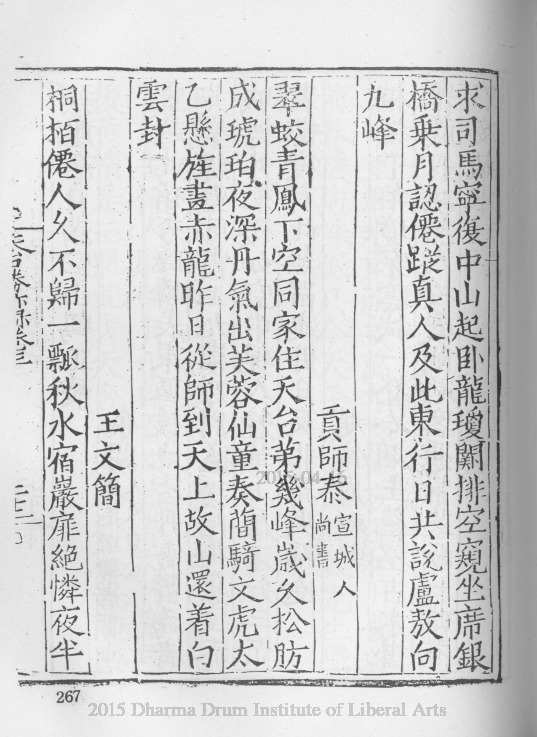 求司馬寧復中山起卧龍瓊闕排空窺坐席銀
橋乗月認僊蹤真人及此東行日共說盧敖向
九峰
貢師泰宣城人尚書
翠蛟青鳳下空同家住天台第幾峰歲久松肪
成琥珀夜深丹氣出芙蓉仙童奏蕳騎文虎太
乙懸旌畫赤龍昨日從師到天上故山還着白
雲封
王文簡
桐栢僊人久不歸一瓢秋水宿巖扉絶憐夜半
天台勝亦录卷三
267
2015 Dharma Drum Institute of Liberal Arts